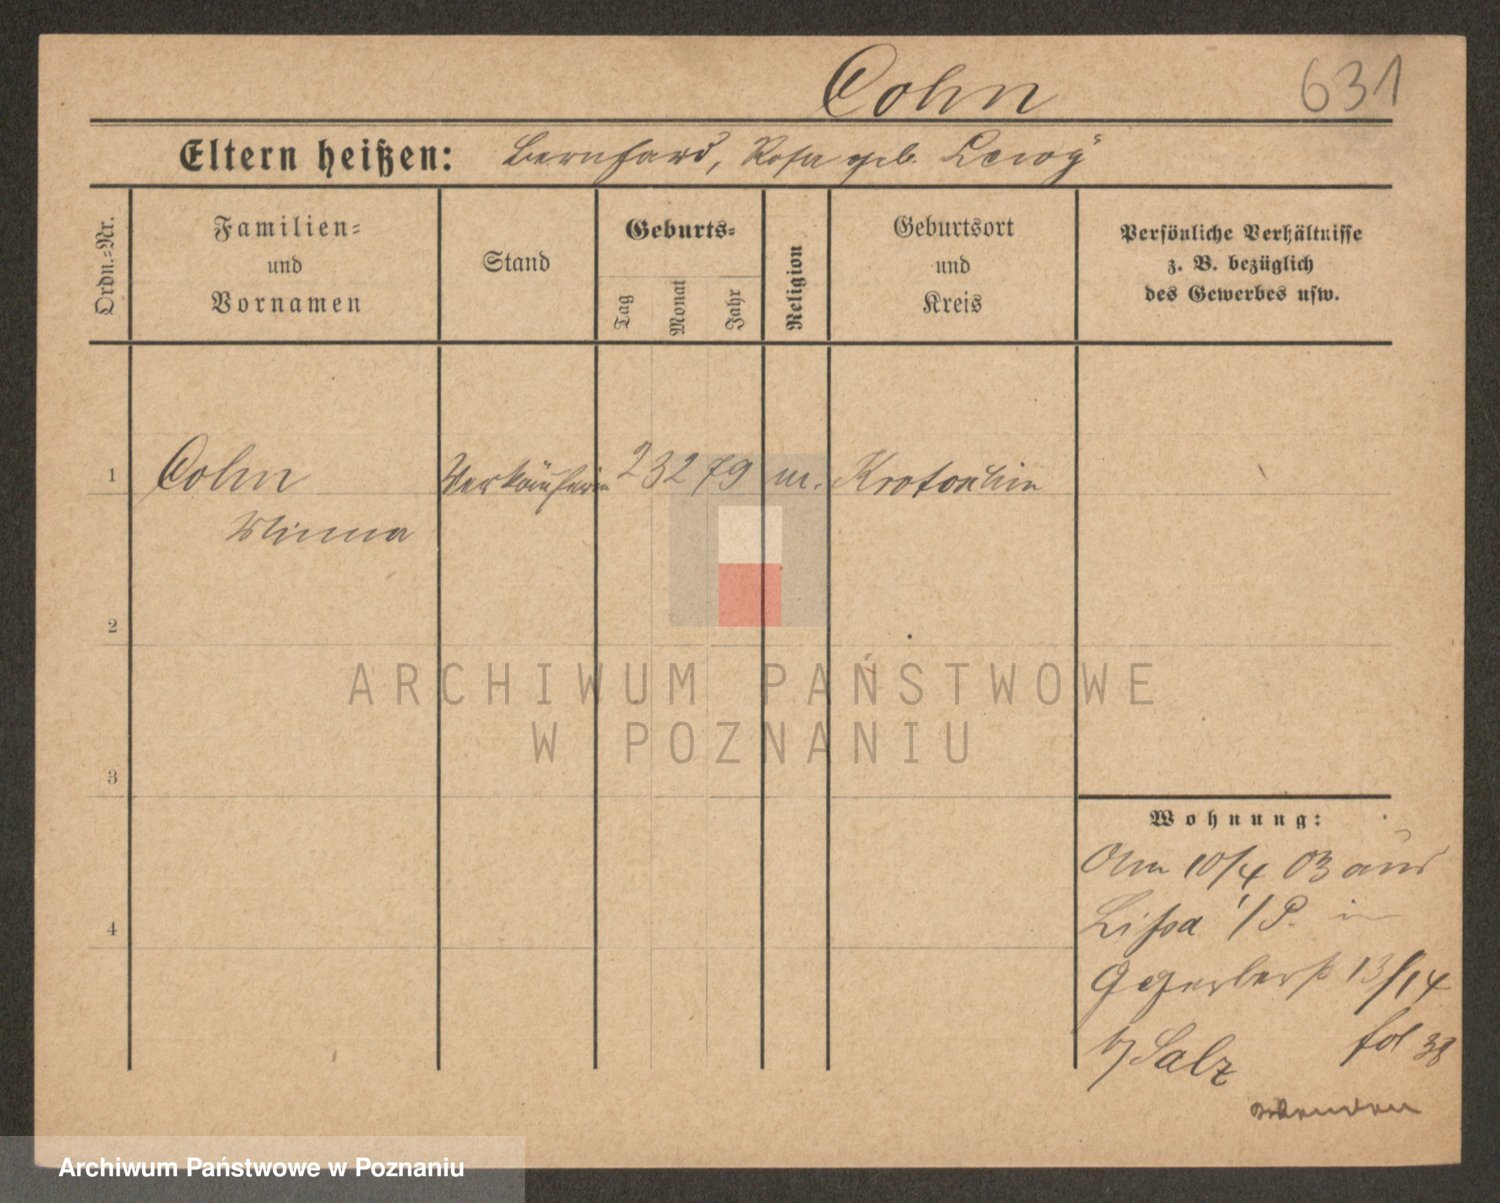 Cohn
631
Eltern heißen: Bernhard, Rosa geb. Lewy
Ordn.=Nr.
Familien=
und
Vornamen
Stand
Geburts=
Tag
Monat
Jahr
Religion
Geburtsort
und
Kreis
Persönliche Verhältnisse
z. B. bezüglich
des Gewerbes usw.
1 Cohn Verkäuferin 23 2 79 m. Krotoschin
Minna
2
ARCHIWUM PAŃSTWOWE
W POZNANIU
3
Wohnung:
Am 10/4 03 aus
Lissa i/P. in
13/14
4
b/ Salz fol 38
wenden
Archiwum Państwowe w Poznaniu